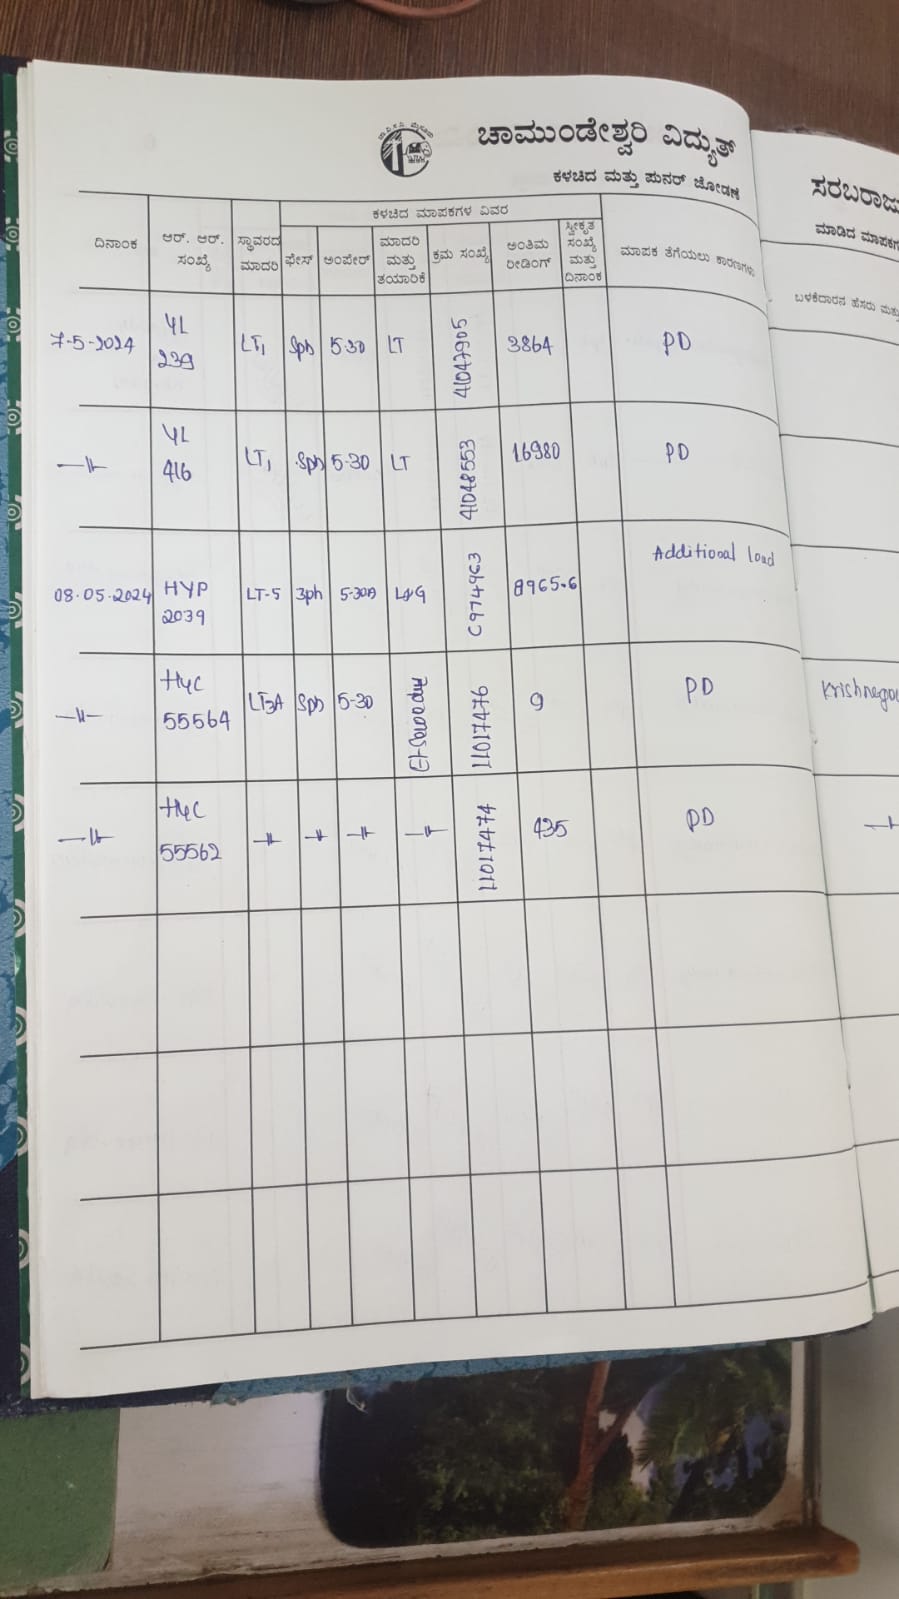 ಚಾಮುಂಡೇಶ್ವರಿ ವಿದ್ಯುತ್
ಕಳಚಿದ ಮತ್ತು ಪುನರ್ ಜೋಡಣೆ
ಸರಬರಾಜು
ಮಾಡಿದ ಮಾಪಕಗಳ
ಕಳಚಿದ ಮಾಪಕಗಳ ವಿವರ
ದಿನಾಂಕ
ಆರ್. ಆರ್. ಸಂಖ್ಯೆ
ಸ್ಥಾವರದ ಮಾದರಿ
ಫೇಸ್
ಅಂಪೇರ್
ಮಾದರಿ ಮತ್ತು ತಯಾರಿಕೆ
ಕ್ರಮ ಸಂಖ್ಯೆ
ಅಂತಿಮ ರೀಡಿಂಗ್
ಸ್ವೀಕೃತ ಸಂಖ್ಯೆ ಮತ್ತು ದಿನಾಂಕ
ಮಾಪಕ ತೆಗೆಯಲು ಕಾರಣಗಳು
ಬಳಕೆದಾರನ ಹೆಸರು ಮತ್ತು
7-5-2024 YL 239 LT1 Sph 5-30 LT 41047905 3864 PD
–"– YL 416 LT1 Sph 5-30 LT 41048553 16980 PD
08.05.2024 HYP 2039 LT-5 3ph 5-30A L&G C974963 8965.6 Additional load
–"– HYC 55564 LT3A Sph 5-30 11017476 9 PD
–"– HYC 55562 –"– –"– –"– –"– 11017474 435 PD –"–